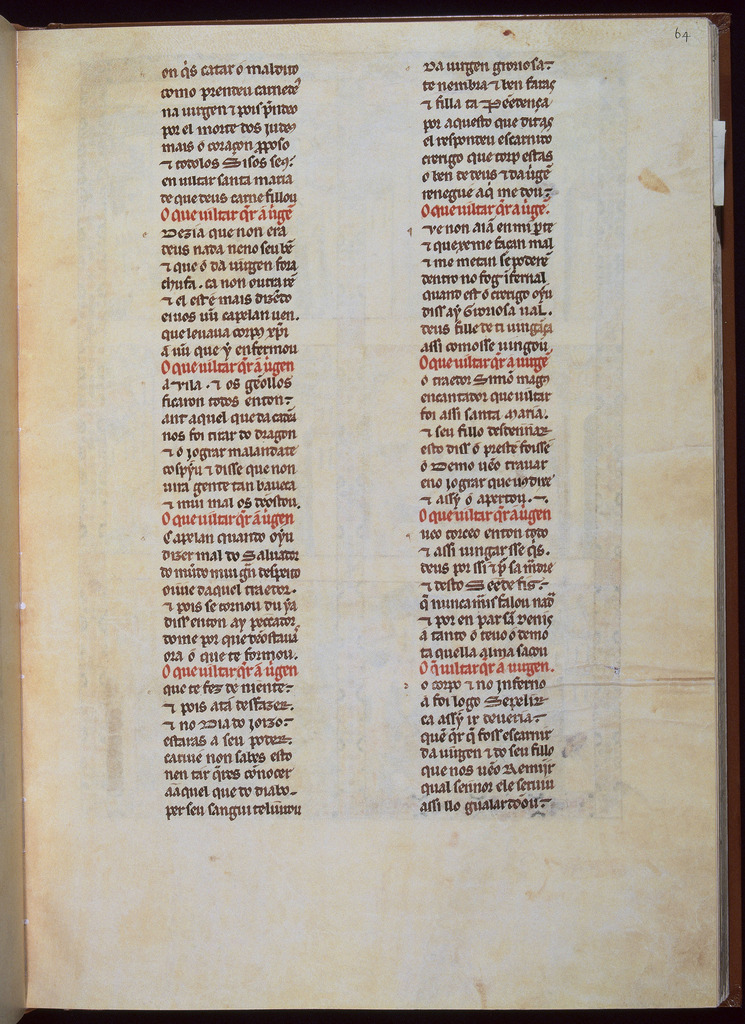 64
on q̃s catar o maldito
como prendeu carne de
na uirgen ⁊ pois p̃ndeo
por el morte dos iudeꝯ
mais o coraçon ꝓposo
⁊ todolos Sisos seꝯ
en uiltar santa maria
de que deus carne fillou
O que uiltar q̃r a uᷓgẽ
Dezia que non era
deus nada neno seu bẽ
⁊ que o da uirgen fora
chufa . ca non outra rẽ
⁊ el est e mais dizẽdo
eiuos uũ capelan uen.
que leuaua corpꝯ xp̃i
a uũ que y enfermou
O que uiltar q̃r a uᷓgen
a vila . ⁊ os geollos
ficaron todos enton
ant aquel que da cadẽa
nos foi tirar do dragon
⁊ o iograr malandãte
cospyu ⁊ disse que non
uira gente tan baueca
⁊ mui mal os dẽostou.
O que uiltar q̃r a uᷓgen
Capelan quando oyu
dizer mal do Saluador
do mũdo mui gñ despeito
ouue daquel traedor.
⁊ pois se tornou du ya
diss enton ay peccador
dome por que dẽostaui
ora o que te formou.
O que uiltar q̃r a uᷓgen
que te fez de niente
⁊ pois ata desfazer.
⁊ no Dia do joizo
estaras a seu poder.
catiue non sabes esto
nen dar q̃res cõnocer
a aquel que do diabo
per seu sangui te liurou
Da uirgen groriosa
te nembra ⁊ ben faras
⁊ filla ta Pẽedença
por aquesto que ditas
el respondeu escarnido
crerigo que torp estas
o ben de deus ⁊ da uᷓgẽ
renegue aq̃ me dou
O que uiltar q̃r a uᷓgẽ.
Xe non aiã en mi p̃te
⁊ que xeme façan mal
⁊ me metan se poderẽ
dentro no fog ifernal
quand est o crerigo oyu
diss ay Groriosa ual.
deus fille de ti uingãça
assi como sse uingou
O que uiltar q̃r a uirgẽ
o traedor Simõ magꝯ
encantador que uiltar
foi assi santa Maria.
⁊ seu fillo desdennar
esto diss o preste fosse
o Demo uẽo trauar
eno iograr que uꝯ dixe
⁊ assy o apertou.
O que uiltar q̃r a uᷓgen
ueo torceo enton todo
⁊ assi uingar sse q̃s.
deus por ssi ⁊ p̃ sa madre
⁊ desto Seede fis
q̃ nunca mais falou nad
⁊ por en par sã Denis
a tanto o teuo o demo
ta quella alma sacou
O q̃ uiltar q̃r a uirgen.
o corpo ⁊ no inferno
a foi logo Sepelir
ca assy ir deueria
quẽ q̃r q̃ foss escarnir
da uirgen ⁊ do seu fillo
que nos uẽo Remijr
qual sennor ele seruiu
assi llo gualardõou